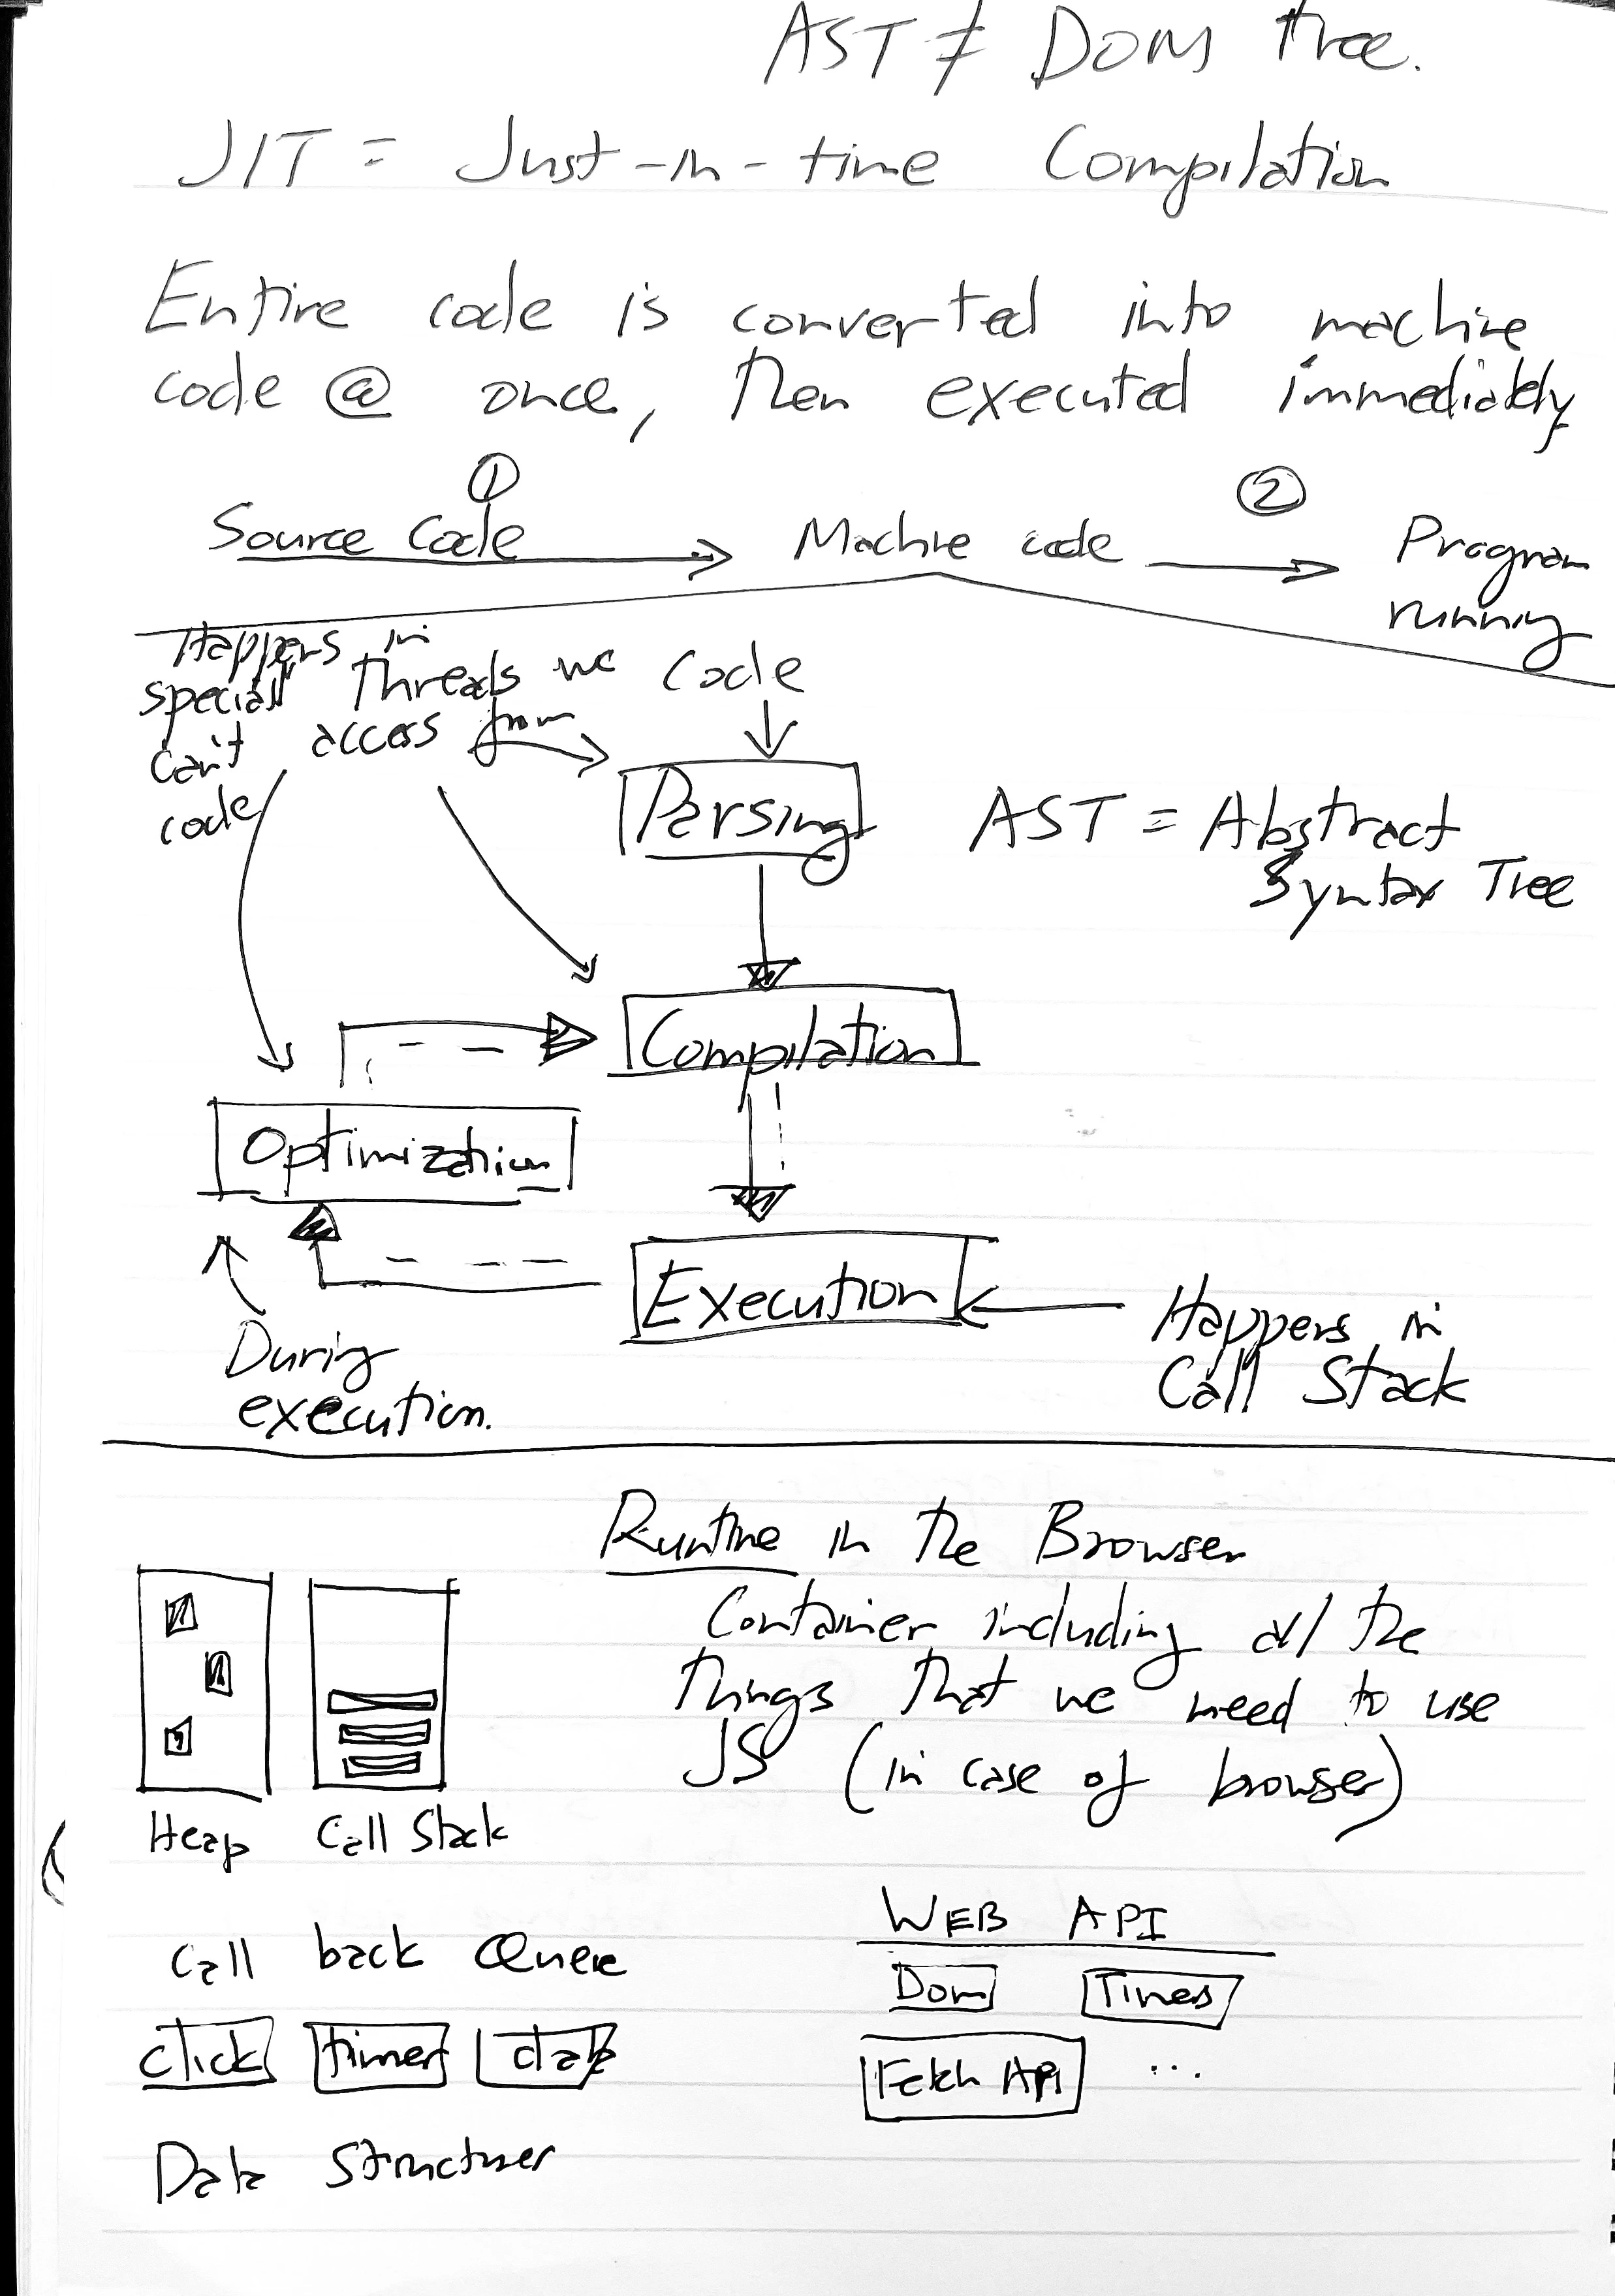 AST ≠ DOM tree.
JIT = Just-in-time Compilation
Entire code is converted into machine
code @ once, then executed immediately
①
②
Source Code → Machine code → Program
running
Happens in
special threads we
can't access from
code
Code
Parsing
AST = Abstract
Syntax Tree
Compilation
Optimization
Execution
Happens in
Call Stack
During
execution.
Runtime in the Browser
Container including all the
things that we need to use
JS (in case of browser)
Heap Call Stack
WEB API
Call back Queue
Dom Timers
click timer data
Fetch API ...
Data Structuer